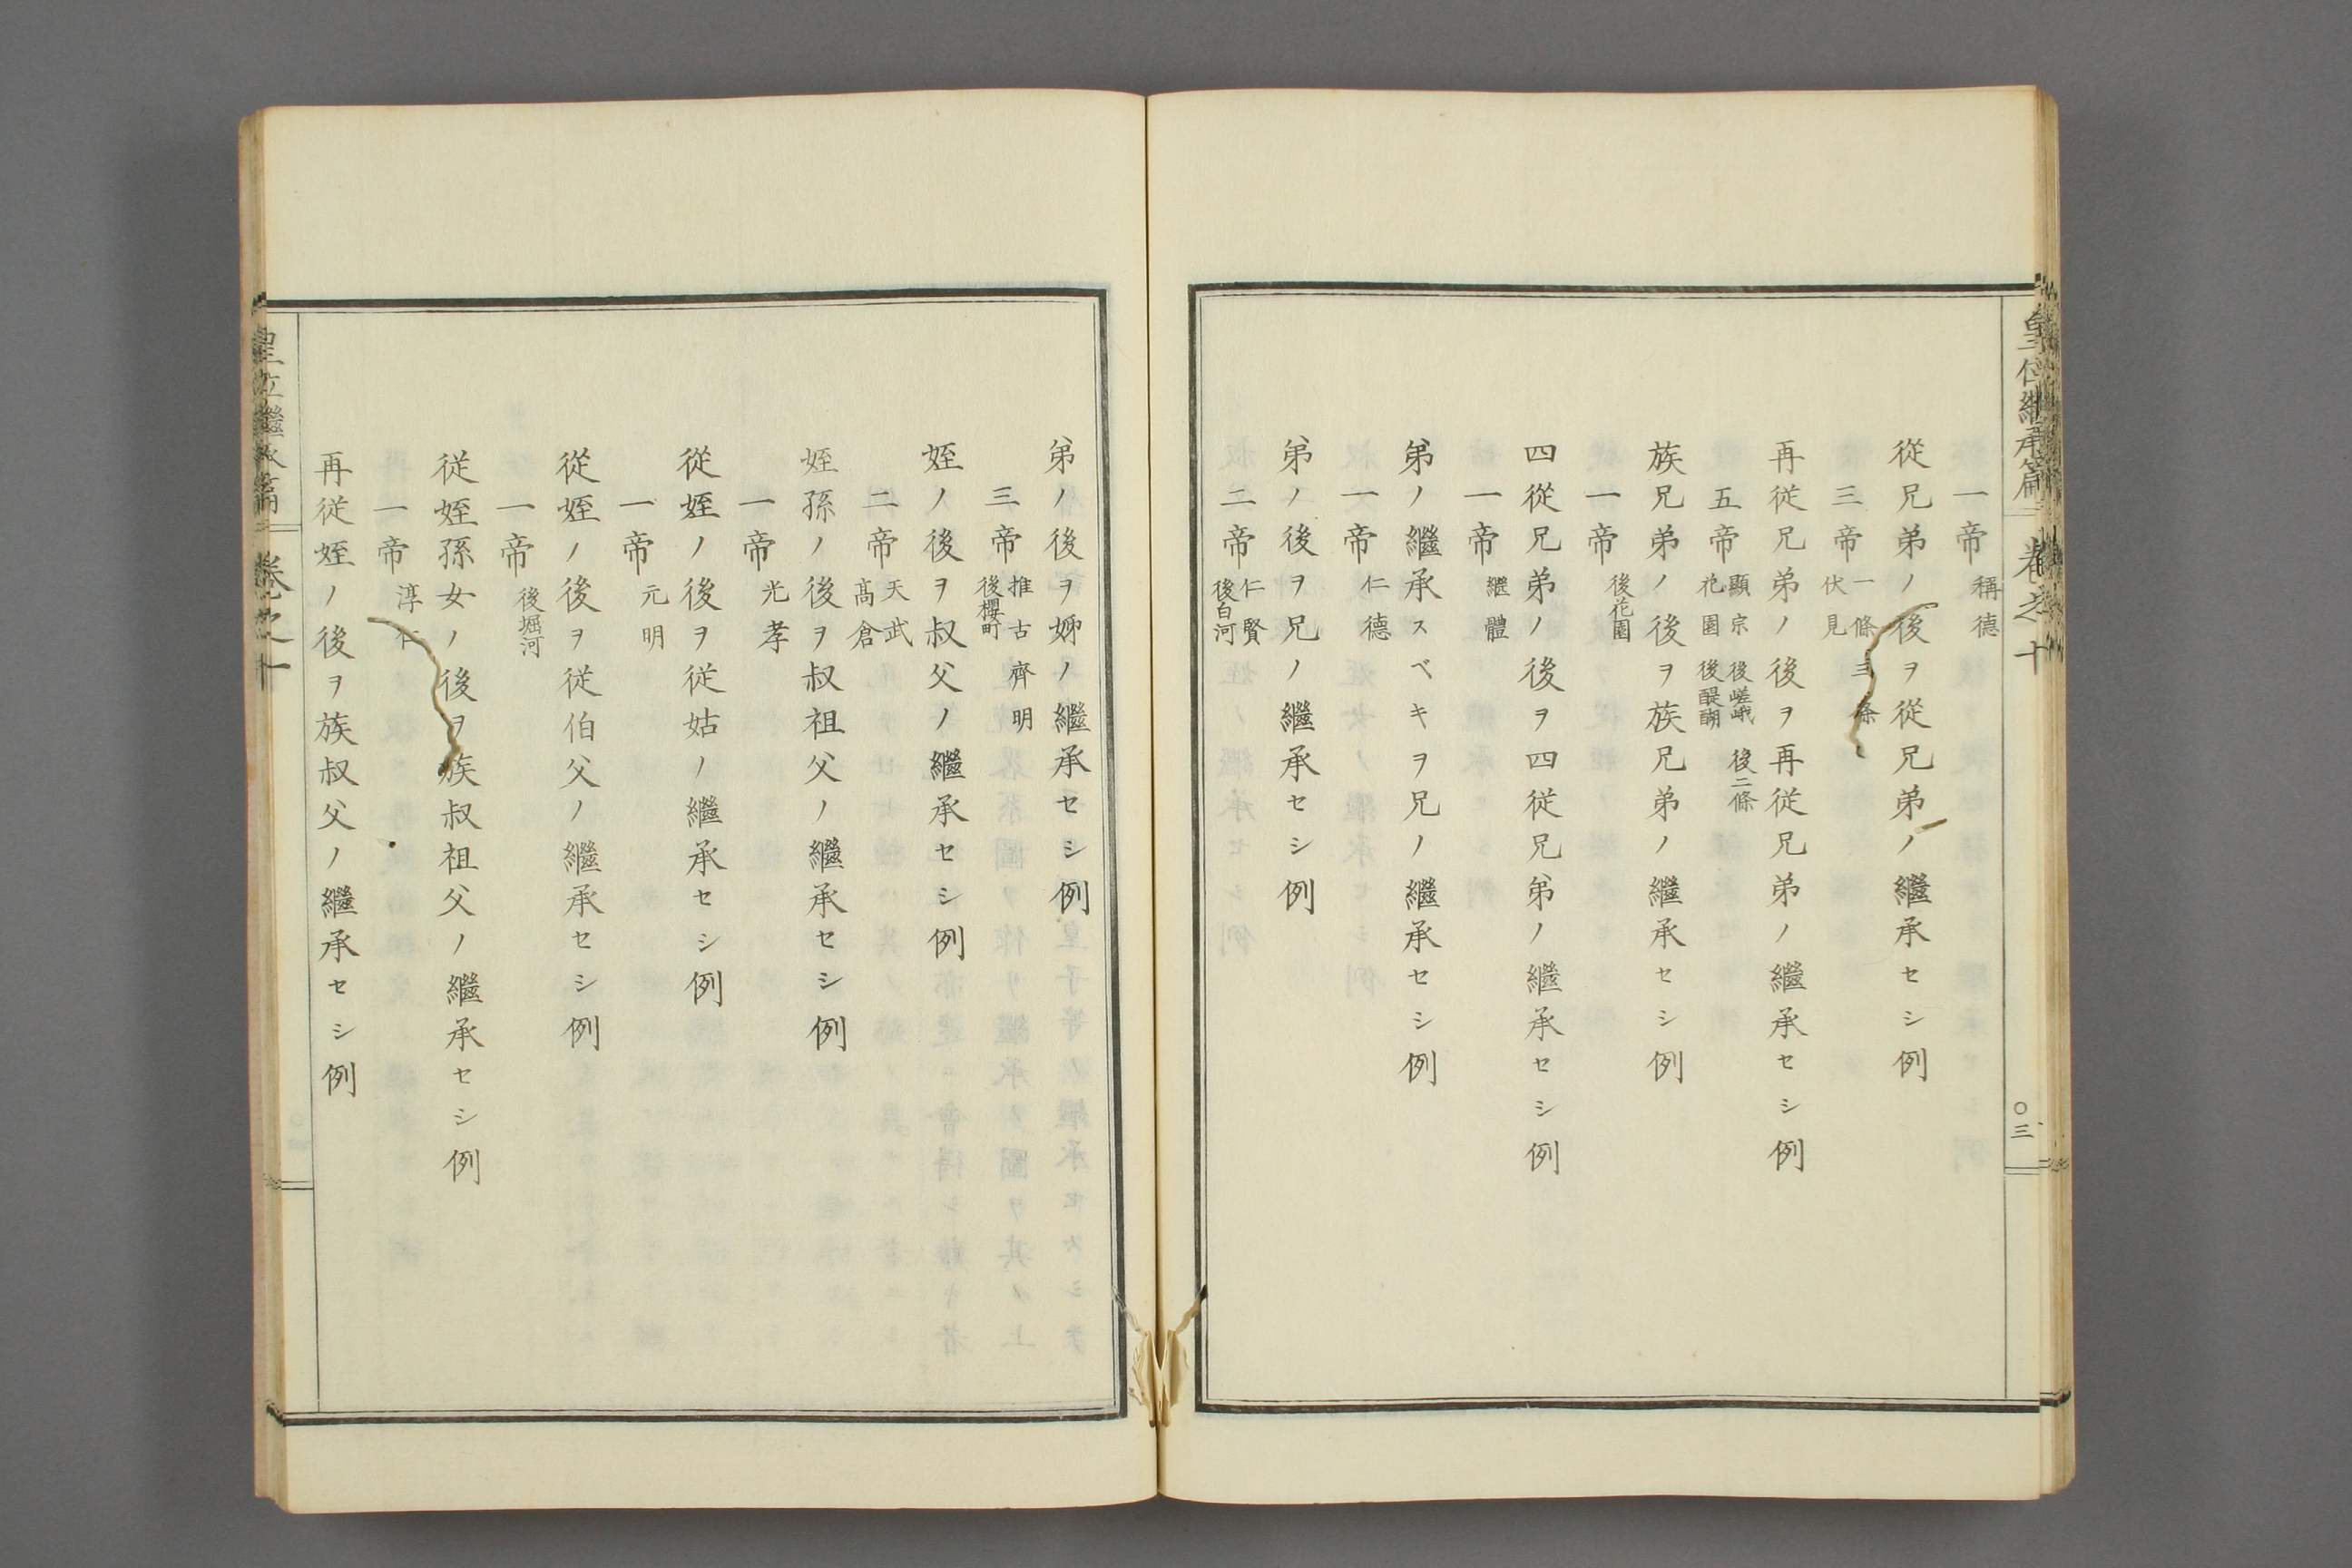 皇位繼承篇 卷之十 〇三
一帝 稱德
從兄弟ノ後ヲ從兄弟ノ繼承セシ例
三帝 一條 三條 伏見
再從兄弟ノ後ヲ再從兄弟ノ繼承セシ例
五帝 顯宗 後嵯峨 後二條 花園 後醍醐
族兄弟ノ後ヲ族兄弟ノ繼承セシ例
一帝 後花園
四從兄弟ノ後ヲ四從兄弟ノ繼承セシ例
一帝 繼體
弟ノ繼承スベキヲ兄ノ繼承セシ例
一帝 仁德
弟ノ後ヲ兄ノ繼承セシ例
二帝 仁賢 後白河
弟ノ後ヲ姊ノ繼承セシ例
三帝 推古 齊明 後櫻町
姪ノ後ヲ叔父ノ繼承セシ例
二帝 天武 高倉
姪孫ノ後ヲ叔祖父ノ繼承セシ例
一帝 光孝
從姪ノ後ヲ從姑ノ繼承セシ例
一帝 元明
從姪ノ後ヲ從伯父ノ繼承セシ例
一帝 後堀河
從姪孫女ノ後ヲ族叔祖父ノ繼承セシ例
一帝 淳仁
再從姪ノ後ヲ族叔父ノ繼承セシ例
皇位繼承篇 卷之十